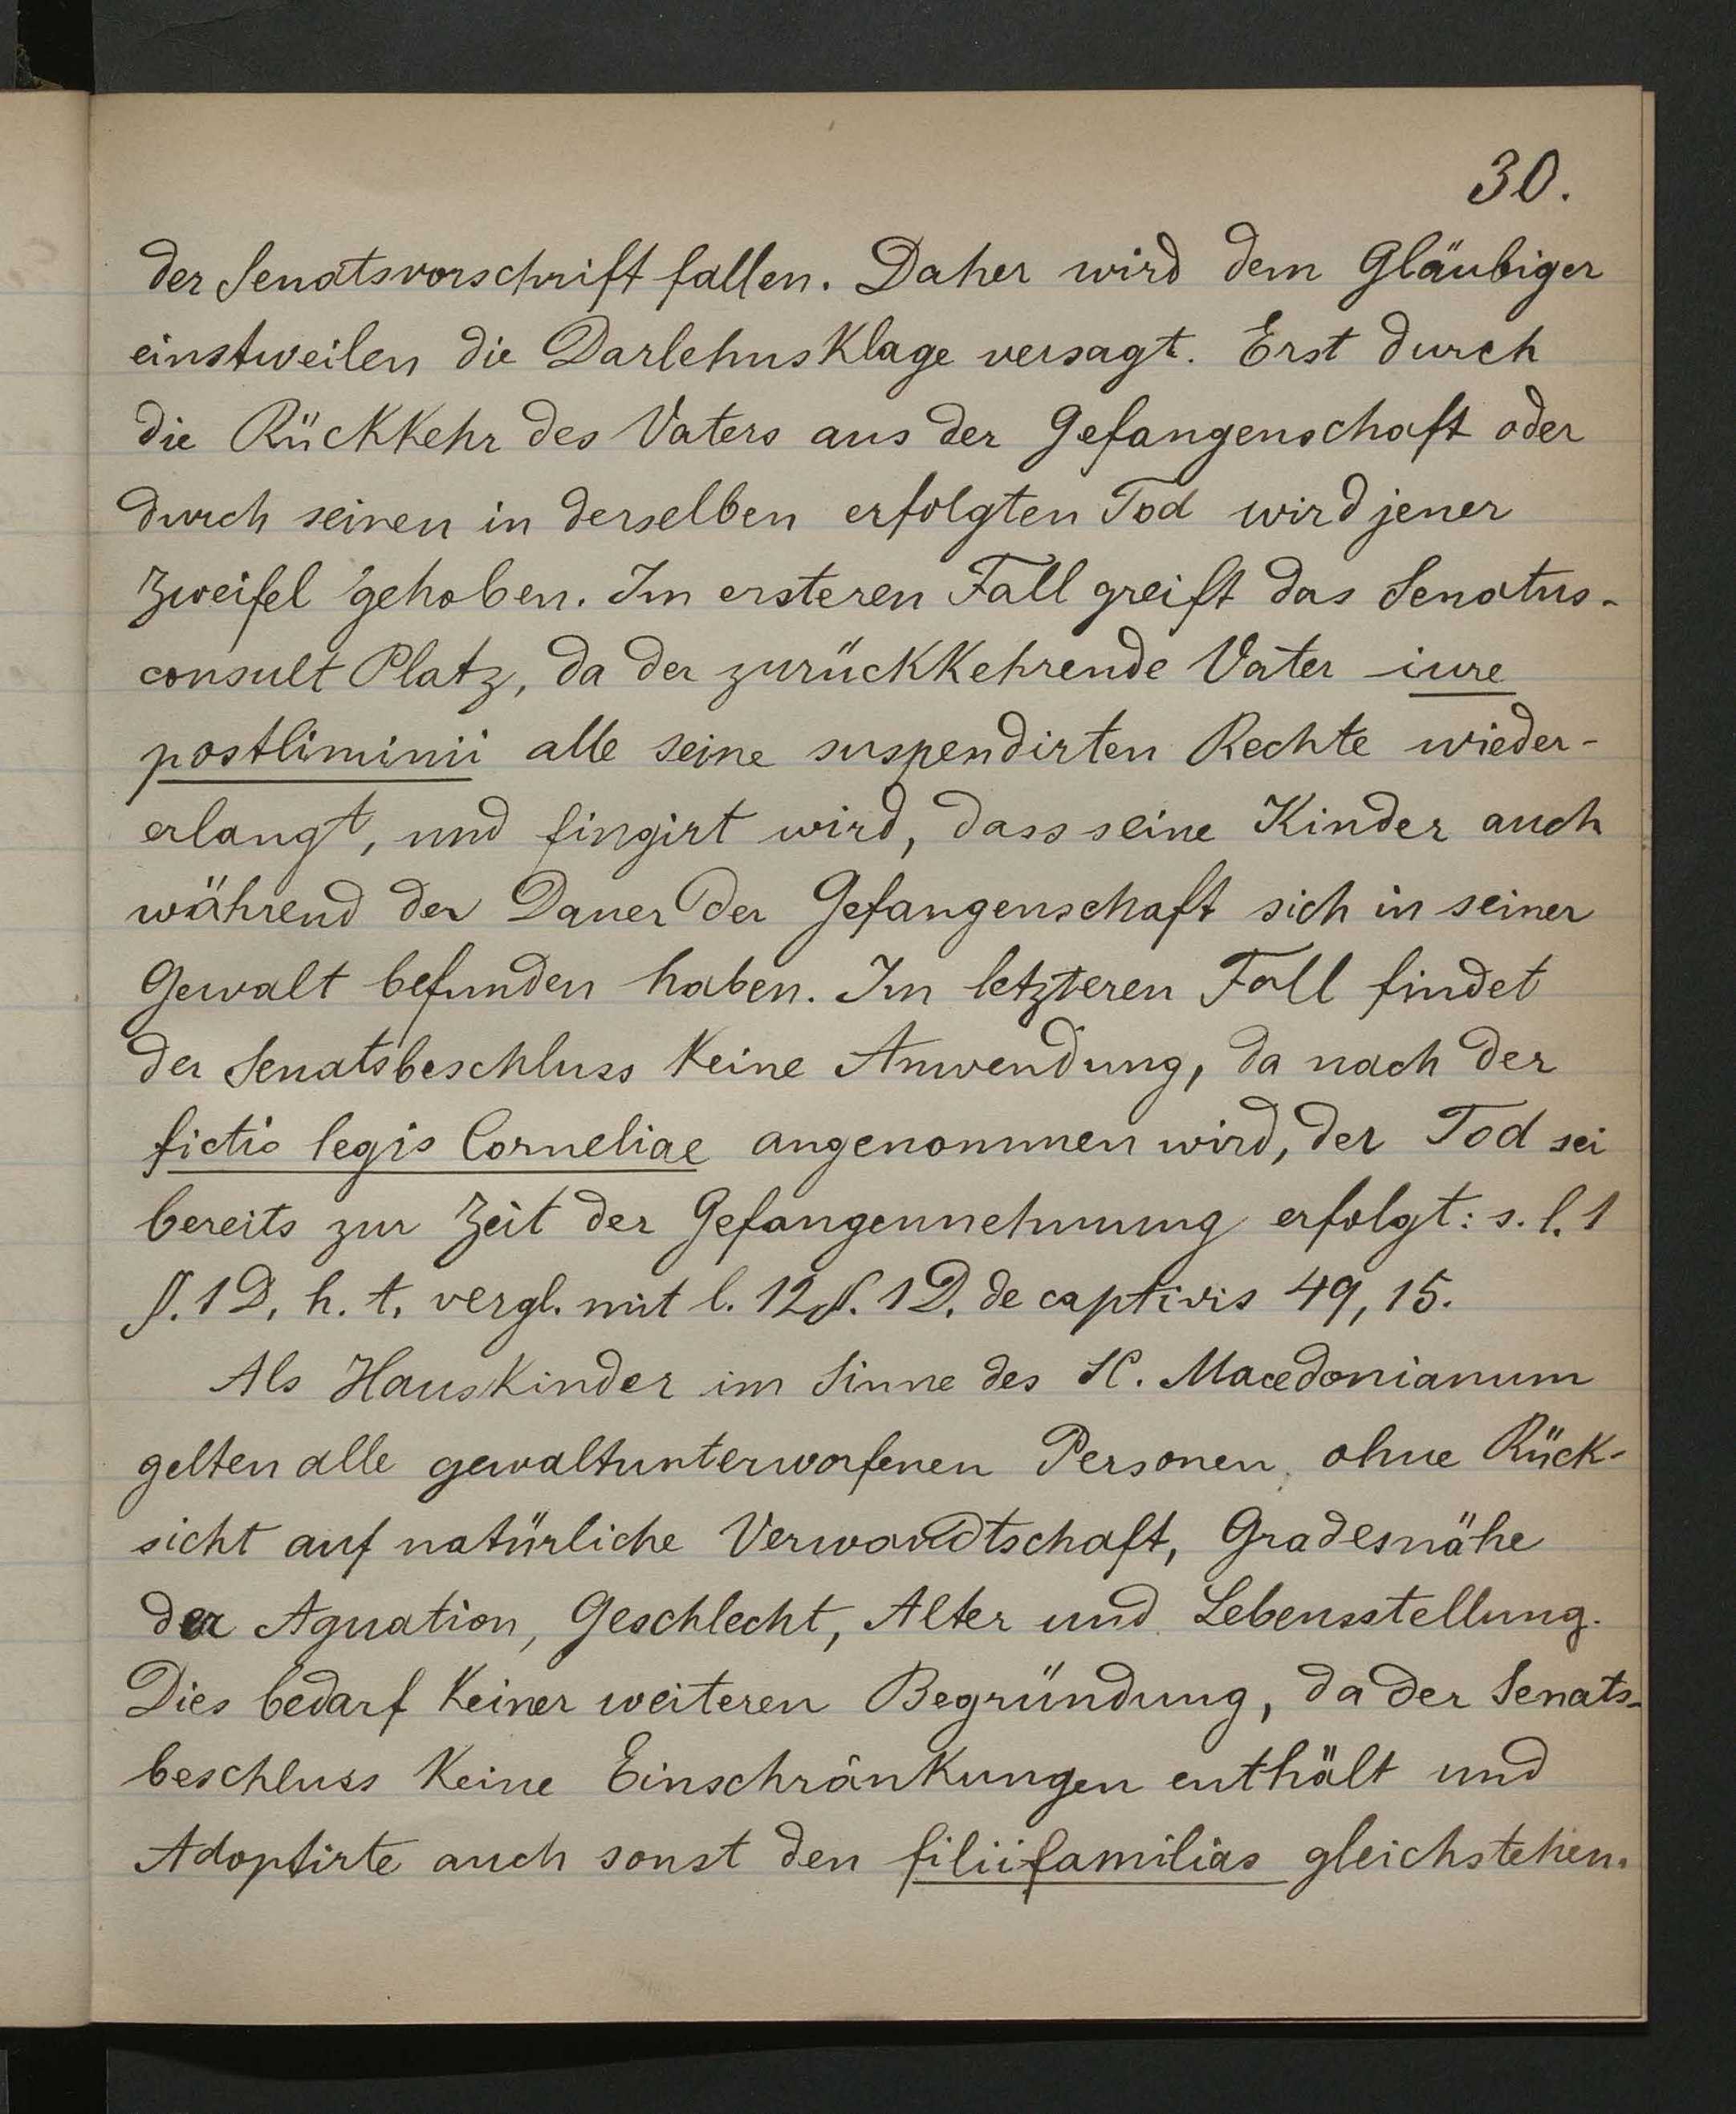 30.
der Senatsvorschrift fallen. Daher wird dem Gläubiger
einstweilen die Darlehnsklage versagt. Erst durch
die Rückkehr des Vaters aus der Gefangenschaft oder
durch seinen in derselben erfolgten Tod wird jener
Zweifel gehoben. Im ersteren Fall greift das Senatus-
consult Platz, da der zurückkehrende Vater iure
postliminii alle seine suspendirten Rechte wieder-
erlangt, und fingirt wird, dass seine Kinder auch
während der Dauer der Gefangenschaft sich in seiner
Gewalt befunden haben. Im letzteren Fall findet
der Senatsbeschluss keine Anwendung, da nach der
fictio legis Corneliae angenommen wird, der Tod sei
bereits zur Zeit der Gefangennehmung erfolgt: s. l. 1
§. 1 D. h. t. vergl. mit l. 12 §. 1 D. de captivis 49, 15.
Als Hauskinder im Sinne des SC. Macedonianum
gelten alle gewaltunterworfenen Personen ohne Rück-
sicht auf natürliche Verwandtschaft, Gradesnähe
der Agnation, Geschlecht, Alter und Lebensstellung.
Dies bedarf keiner weiteren Begründung, da der Senats-
beschluss keine Einschränkungen enthält und
Adoptirte auch sonst den filiifamilias gleichstehen.